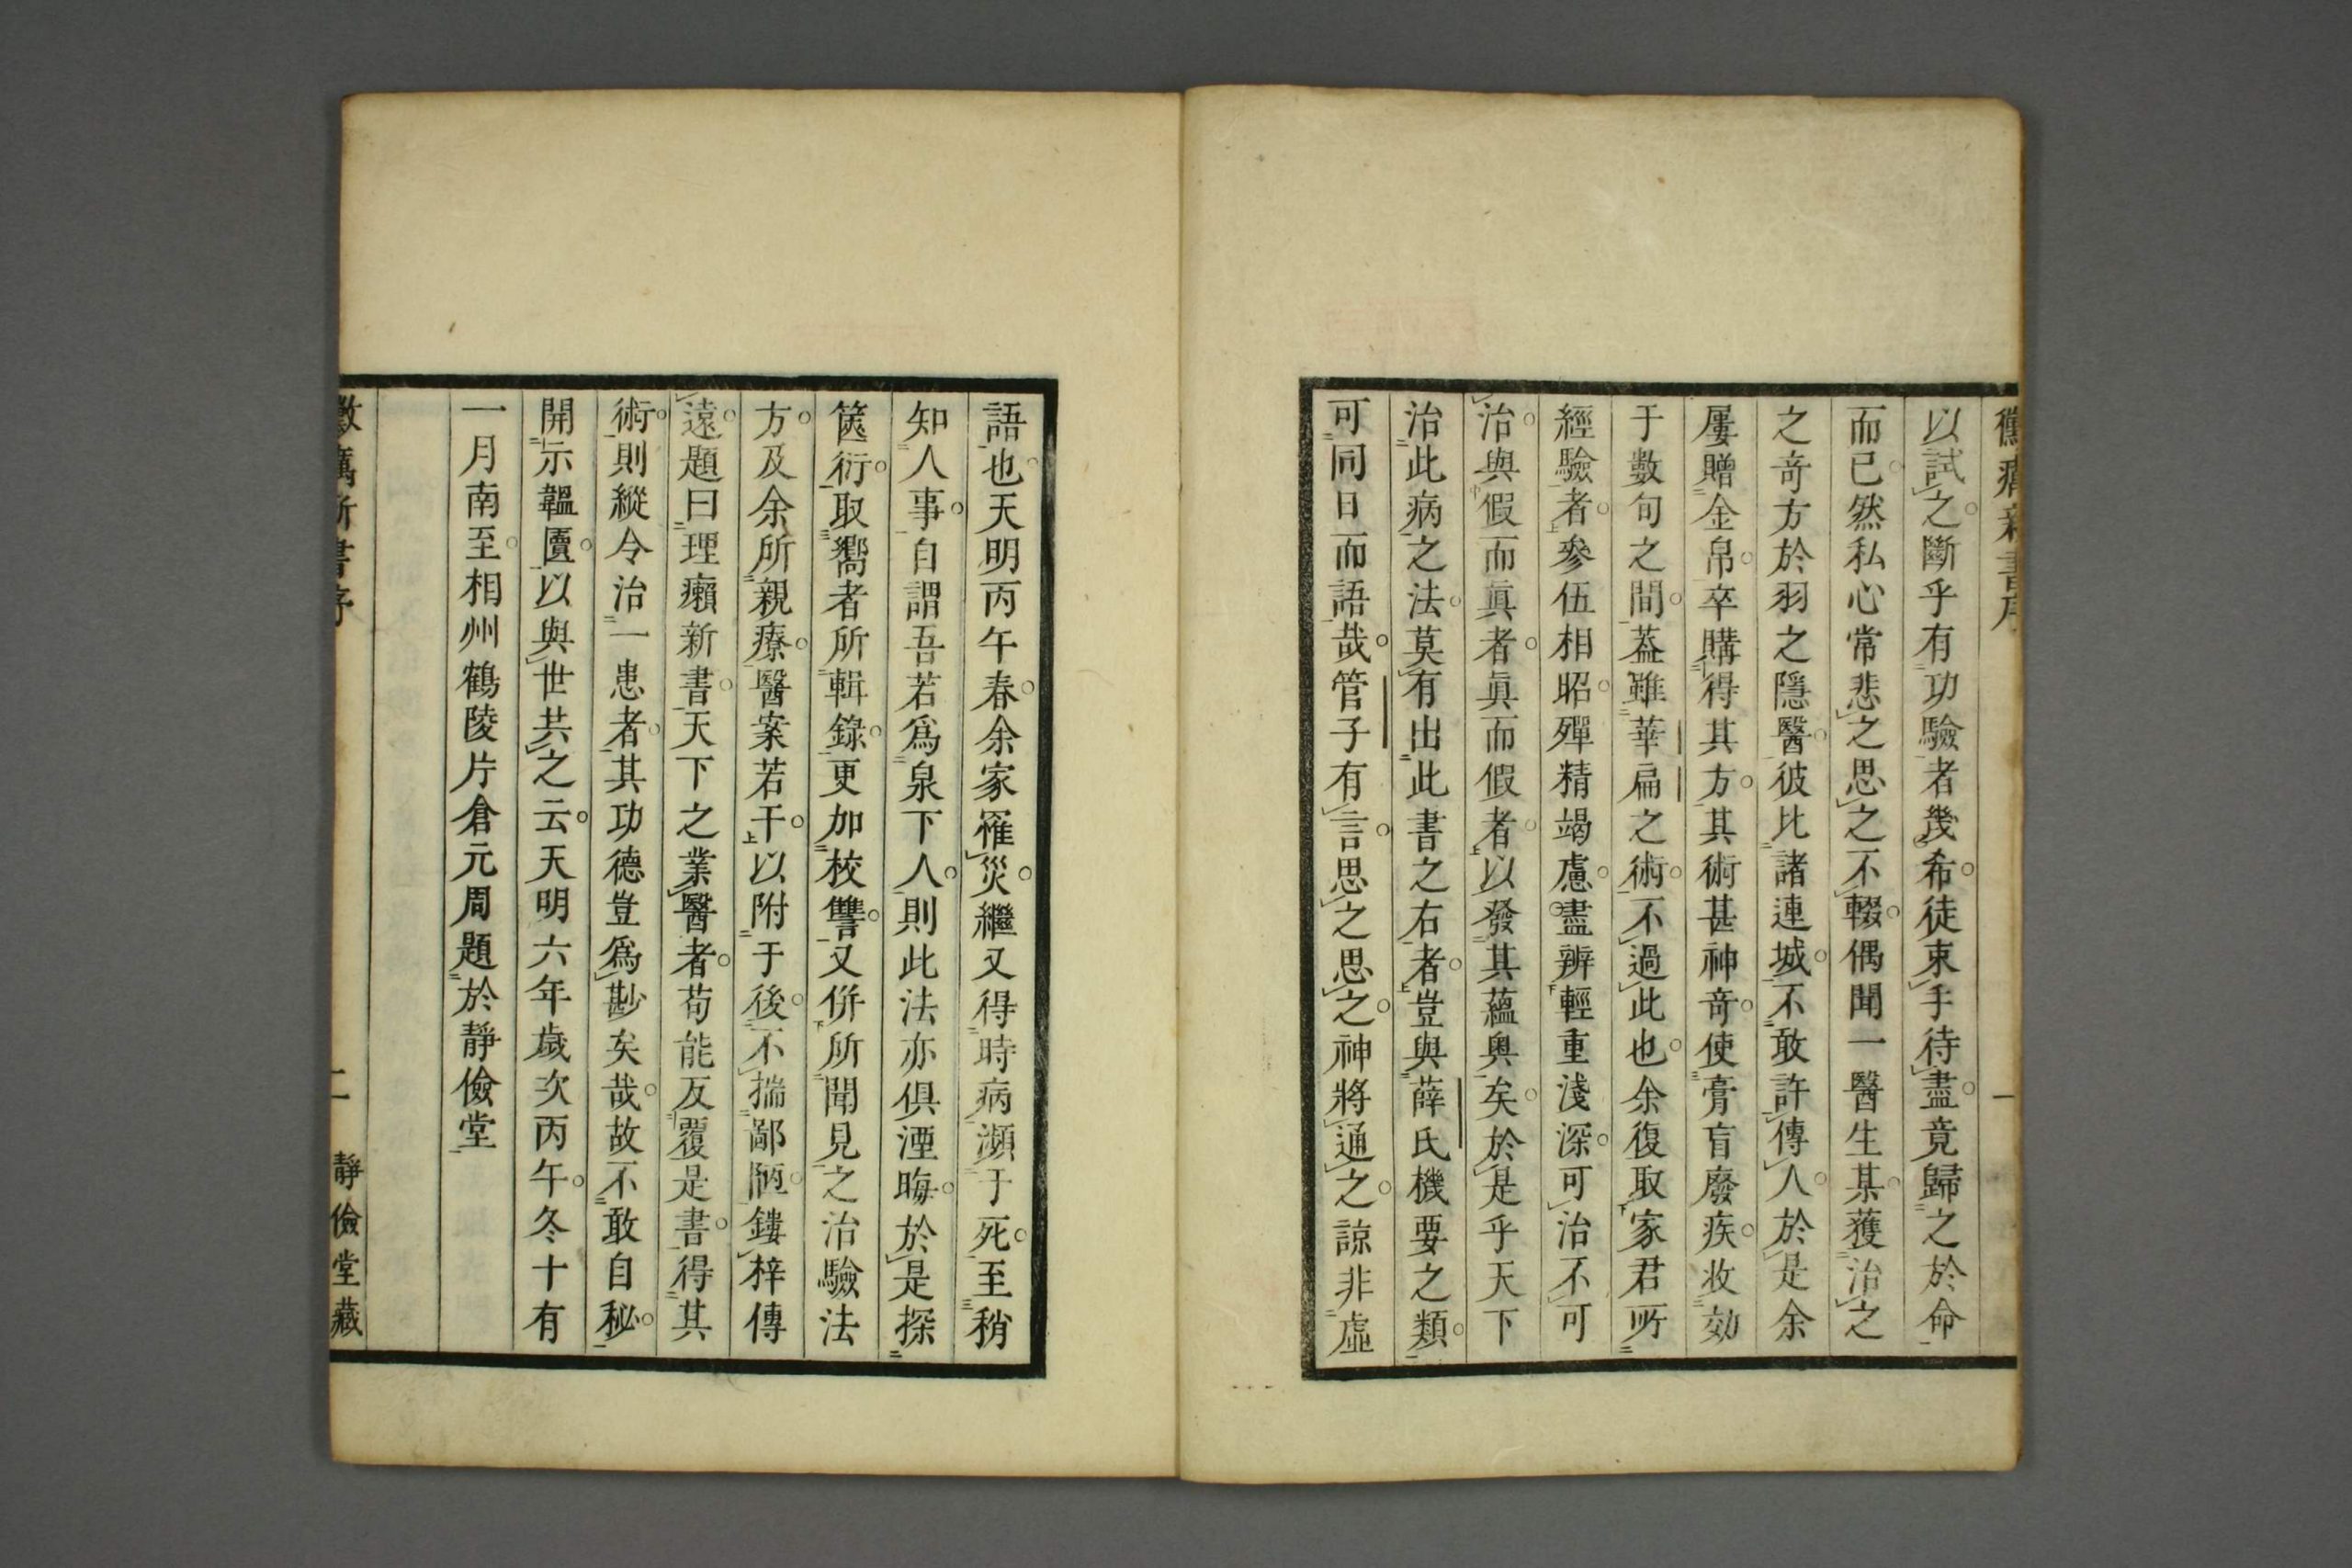 黴癘新書序
一
以試之斷乎有功驗者幾希徒束手待盡竟歸之於命
而已然私心常悲之思之不輟偶聞一醫生某獲治之
之竒方於羽之隱醫彼比諸連城不敢許傳人於是余
屢贈金帛卒購得其方其術甚神竒使膏肓廢疾收効
于數旬之間葢雖華扁之術不過此也余復取家君所
經驗者參伍相昭殫精竭慮盡辨輕重淺深可治不可
治與假而眞者眞而假者以發其蘊奥矣於是乎天下
治此病之法莫有出此書之右者豈與薛氏機要之類
可同日而語哉管子有言思之思之神將通之諒非虛
語也天明丙午春余家罹災繼又得時病瀕于死至稍
知人事自謂吾若爲泉下人則此法亦俱湮晦於是探
篋衍取嚮者所輯錄更加校讐又併所聞見之治驗法
方及余所親療醫案若干以附于後不揣鄙陋鏤梓傳
遠題曰理癩新書天下之業醫者苟能反覆是書得其
術則縱令治一患者其功德豈爲尠矣哉故不敢自秘
開示韞匵以與世共之云天明六年歲次丙午冬十有
一月南至相州鶴陵片倉元周題於靜儉堂
黴癘新書序
二
靜儉堂藏